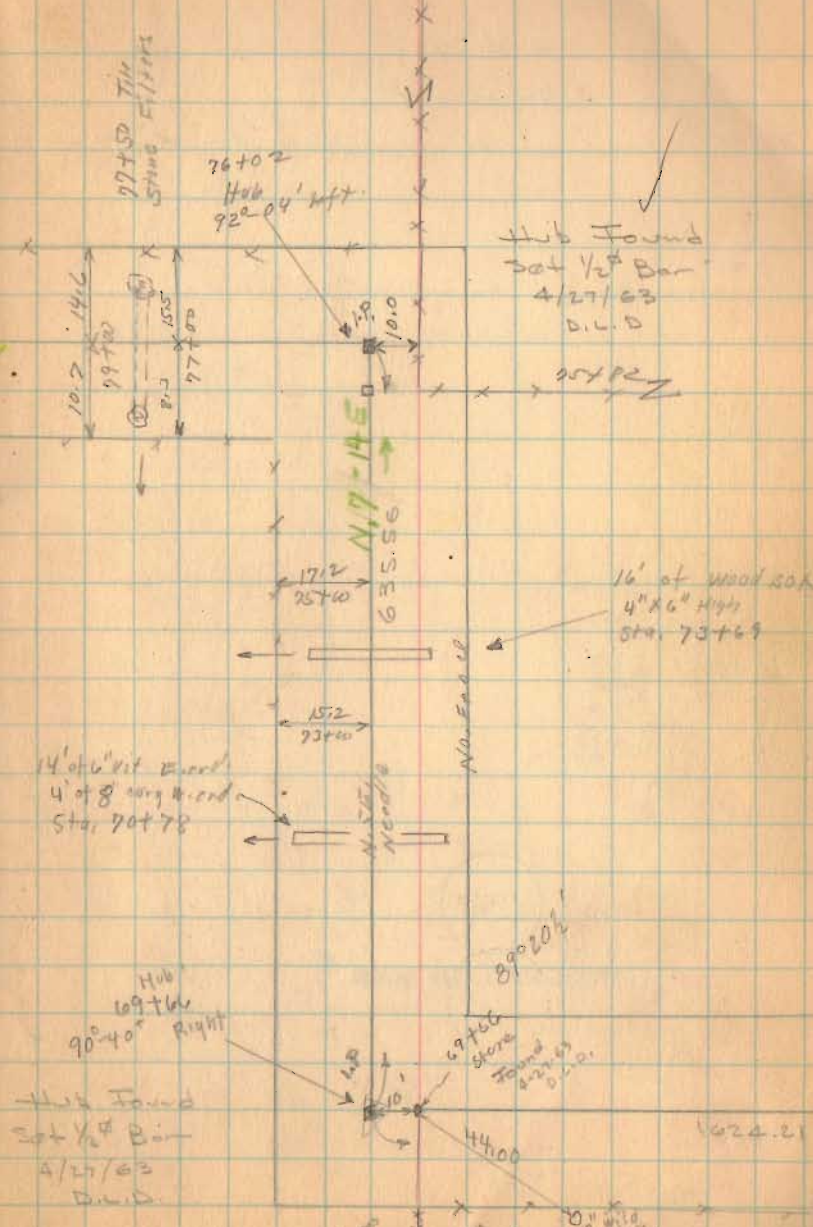 77+50 Tile
Stone Filters
76+02
Hub
92°-04' Left.
Hub Found
Set 1/2" Bar
4/27/63
D.L.D
14.6
10.2
79+00
15.5
8.3
77+00
I.P.
10.0
75+82
N.7-14E
635.56
17.2
75+00
16' of Wood Box
4"x6" High
Sta. 73+69
15.2
73+00
No Fence
14' of 6" Vit E.end
4' of 8" Corg W.end
Sta. 70+78
N. 5¾ E
Needle
89°20½'
Hub
69+66
90°-40' Right
69+66
Stone
Found
4-27-63
D.L.D.
I.P.
10'
Hub Found
Set 1/2" Bar
4/27/63
D.L.D.
44.00
1624.21
" Wild